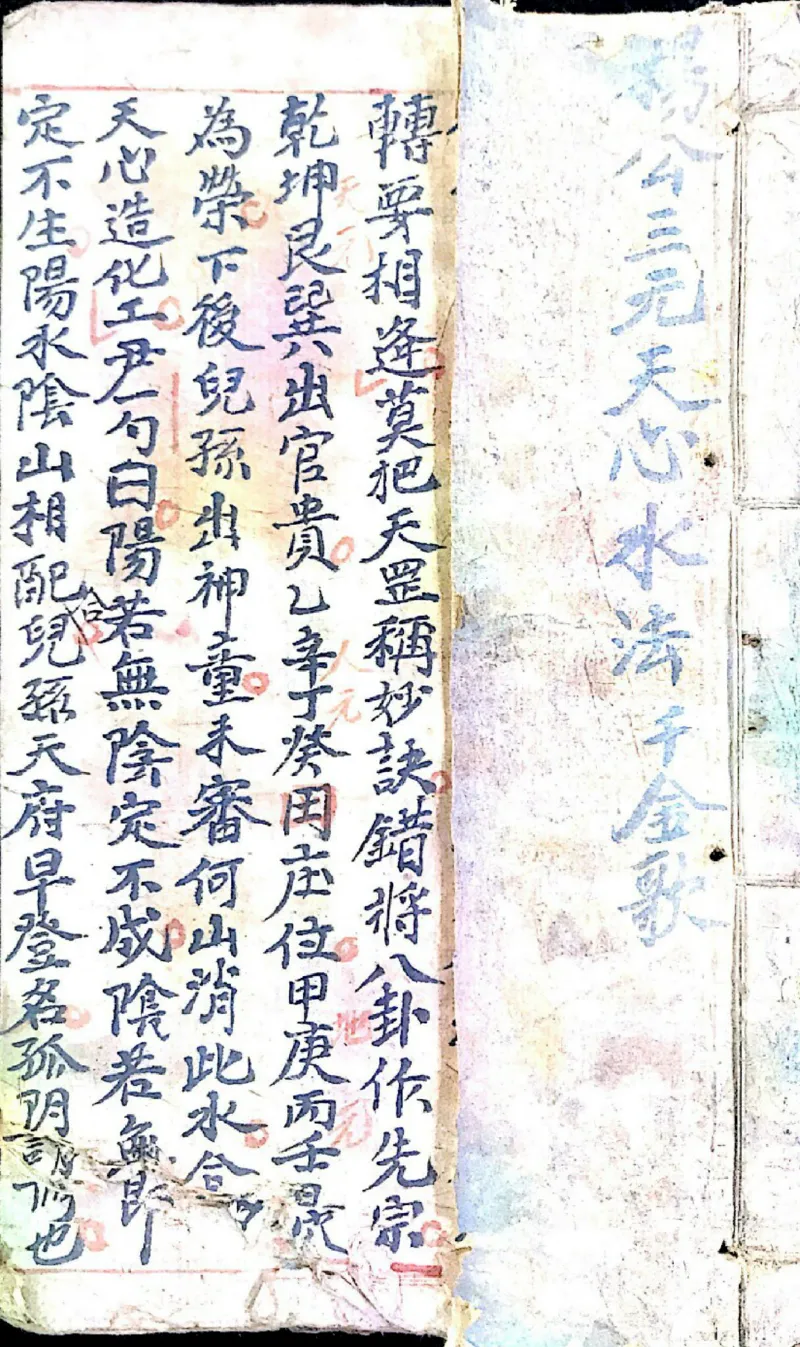 楊公三元天心水法千金歌
轉要相逢莫把天罡稱妙訣錯將八卦作先宗
乾坤艮巽出官貴乙辛丁癸田庄位甲庚丙壬最
天元
人元
地元
為榮下後兒孫出神童未審何山消此水合
天心造化工尹一勺曰陽若無陰定不成陰若無即
定不生陽水陰山相配兒孫天府早登名孤陽
合
也